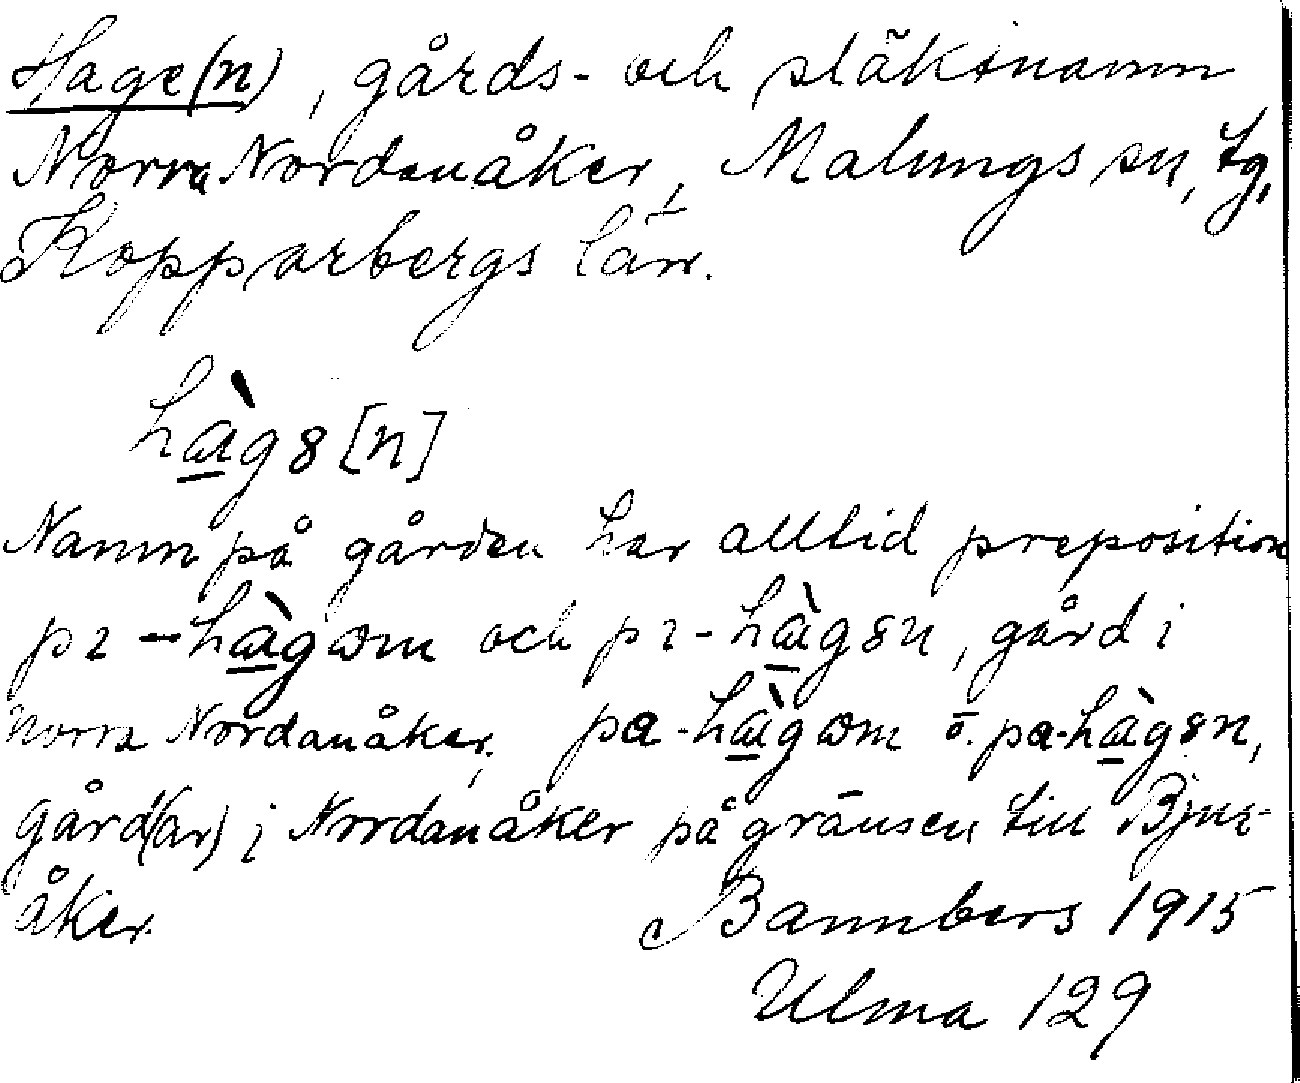 Hage(n), gårds- och släktnamn
Norra Nordanåker, Malungs sn, tg,
Kopparbergs län.
hàg8[n]
Namn på gården har alltid preposition
pɿ-hàgωm och pɿ-hàg8n, gård i
Norra Nordanåker, pa-hàgωm o. pa-hàg8n,
gård(ar) i Nordanåker på gränsen till Bjur-
åker.
Bannbers 1915
Ulma 129